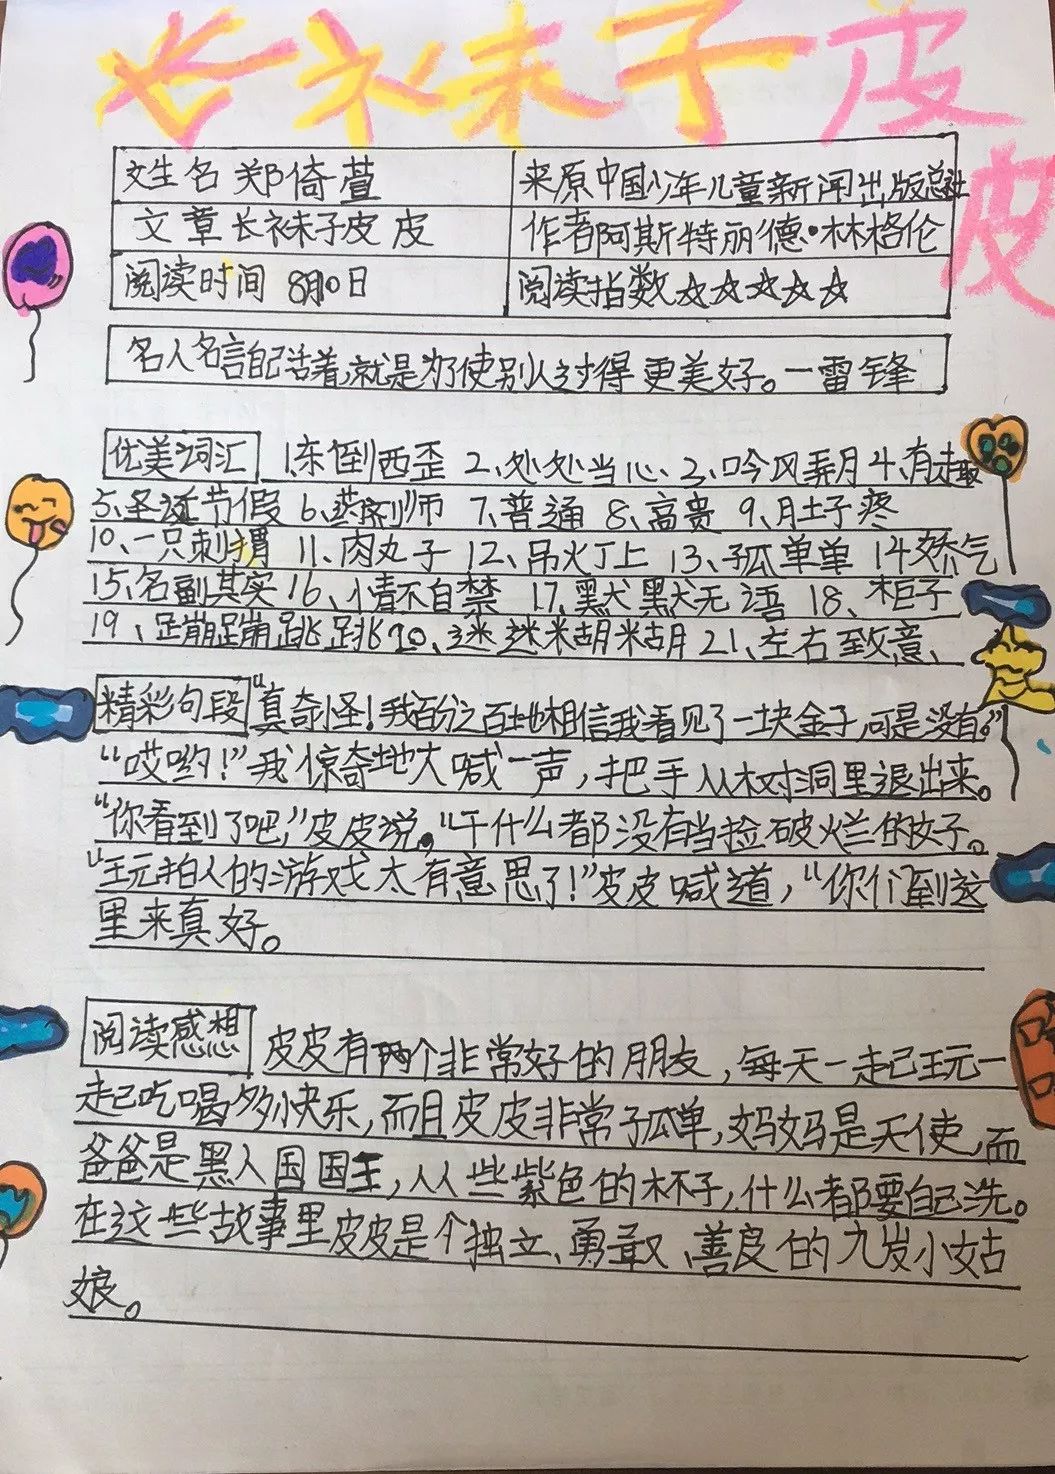 长袜子皮
皮
姓名 郑倚萱
来原中国少年儿童新闻出版总社
文章长袜子皮皮
作者阿斯特丽德·林格伦
阅读时间 8月10日
阅读指数☆☆☆☆☆
名人名言自己活着,就是为了使别人过得更美好。一雷锋
优美词汇 1、东倒西歪 2、处处当心 3、吟风弄月 4、有趣
5、圣诞节假 6、蒸刷师 7、普通 8、高贵 9、肚子疼
10、一只刺猬 11、肉丸子 12、吊火丁上 13、孤单单 14娇气
15、名副其实 16、情不自禁 17、默默无语 18、柜子
19、蹦蹦跳跳 20、迷迷糊糊 21、左右致意、
精彩句段 “真奇怪!我百分之百地相信我看见了一块金子,可是没有。”
“哎哟!”我惊奇地大喊一声,把手从树洞里退出来。
“你看到了吧,”皮皮说。“干什么都没有当捡破烂的好。
“玩拍人的游戏太有意思了!”皮皮喊道,“你们到这
里来真好。
阅读感想 皮皮有两个非常好的朋友,每天一起玩一
起吃喝多么快乐,而且皮皮非常孤单,妈妈是天使,而
爸爸是黑人国国王,从些紫色的杯子,什么都要自己洗。
在这些故事里皮皮是个独立、勇敢、善良的九岁小姑
娘。